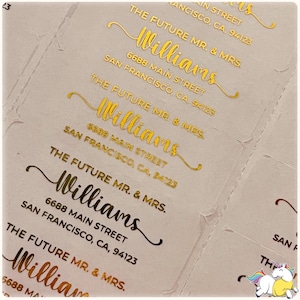 THE FUTURE MR. & MRS.
Williams
6688 MAIN STREET
SAN FRANCISCO, CA, 94123
THE FUTURE MR. & MRS.
Williams
6688 MAIN STREET
SAN FRANCISCO, CA, 94123
THE FUTURE MR. & MRS.
Williams
6688 MAIN STREET
SAN FRANCISCO, CA, 94123
THE FUTURE MR. & MRS.
Williams
6688 MAIN STREET